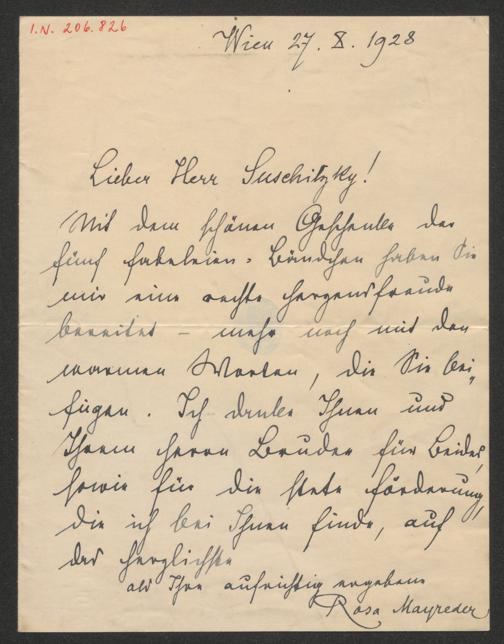 I.N. 206.826
Wien 27. X. 1928
Lieber Herr Suschitzky!
Mit dem schönen Geschenke der
fünf Fabeleien-Bändchen haben Sie
mir eine rechte Herzensfreude
bereitet – mehr noch mit den
warmen Worten, die Sie bei-
fügen. Ich danke Ihnen und
Ihrem Herrn Bruder für Beides,
sowie für die stete Förderung,
die ich bei Ihnen finde, auf
das herzlichste
als Ihre aufrichtig ergebene
Rosa Mayreder